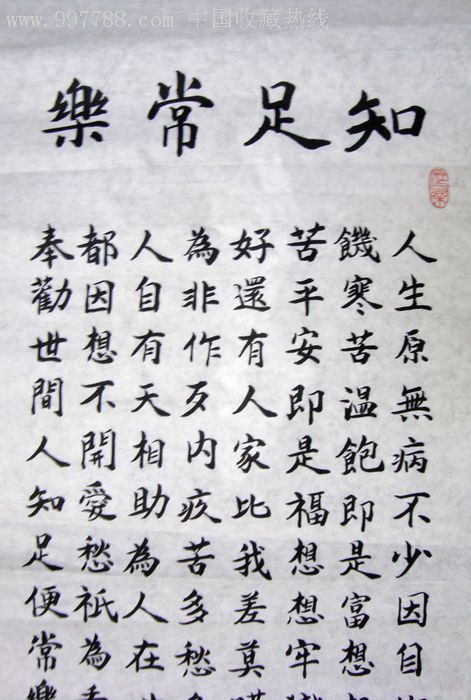 www.997788.com 中国收藏热线
知足常樂
人生原無病不少因自
饑寒苦溫飽即是富想
苦平安即是福想想牢
好還有人家比我差莫
為非作歹內疚苦多愁
人自有天相助為人在
都因想不開愛愁衹為
奉勸世間人知足便常樂